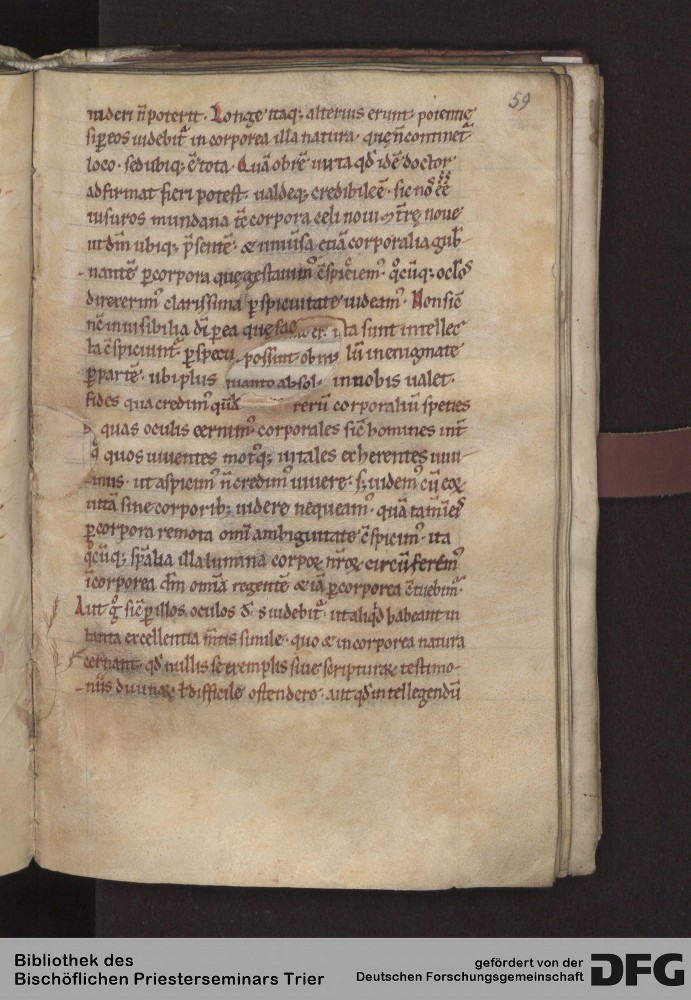 59
uideri n̄ poterit · Longe itaq; alterius erunt · potentię
si p̱ eos uidebit᷑ in corporea illa natura · quę n̄ continet᷑
loco · sed ubiq; ē tota · Quā obrē iuxta qd̄ idē doctor
adfirmat fieri potest · ualdeq; credibile ē · sic nos ēē
uisuros mundana tc̄ corpora celi noui ⁊ tr̄ę nouę
ut dm̄ ubiq; p̄sentē · & uniūsa etiā corporalia gub̄-
-nantē p̱ corpora quę gestauim᷒ c̄spiciem᷒ · q°cūq; oclos
direxerim᷒ clarissima p̱spicuitate uideam᷒ · Non sic̄
nc̄ inuisibilia dī p̱ ea quę fac ta sunt intellec
ta c̄spiciunt᷑ · p̱ specu lū in enigmate
p̱ partē · ubi plus in nobis ualet ·
fides qua credim᷒ quā rerū corporaliū species
quas oculis cernim᷒ corporales sic̄ homines int̄
quos uiuentes mot᷒q; uitales exherentes uiui-
-mus · ut aspicim᷒ n̄ credim᷒ uiuere · s; uidem᷒ cū eoꝝ
uitā sine corporib; uidere nequeam᷒ · quā tam̄ ī eis
p̱ corpora remota omī ambiguitate c̄spicim᷒ · ita
q°cūq; sp̄alia illa lumina corpoꝝ nr̄oꝝ circūferem᷒
īcorporea dm̄ omīa regentē & iā p̱ corpora c̄tuebim᷑
Aut g° sic̄ p̱ illos oculos d̄s uidebit᷑ · ut aliqd̄ habeant in
tanta excellentia m̄tis simile · quo & in corporea natura
cernant · qd̄ nullis se exemplis siue scripturaꝝ testimo-
-niis diuinaꝝ ł difficile ostendere · aut qd̄ intellegendū
Bibliothek des
Bischöflichen Priesterseminars Trier
gefördert von der
Deutschen Forschungsgemeinschaft
DFG